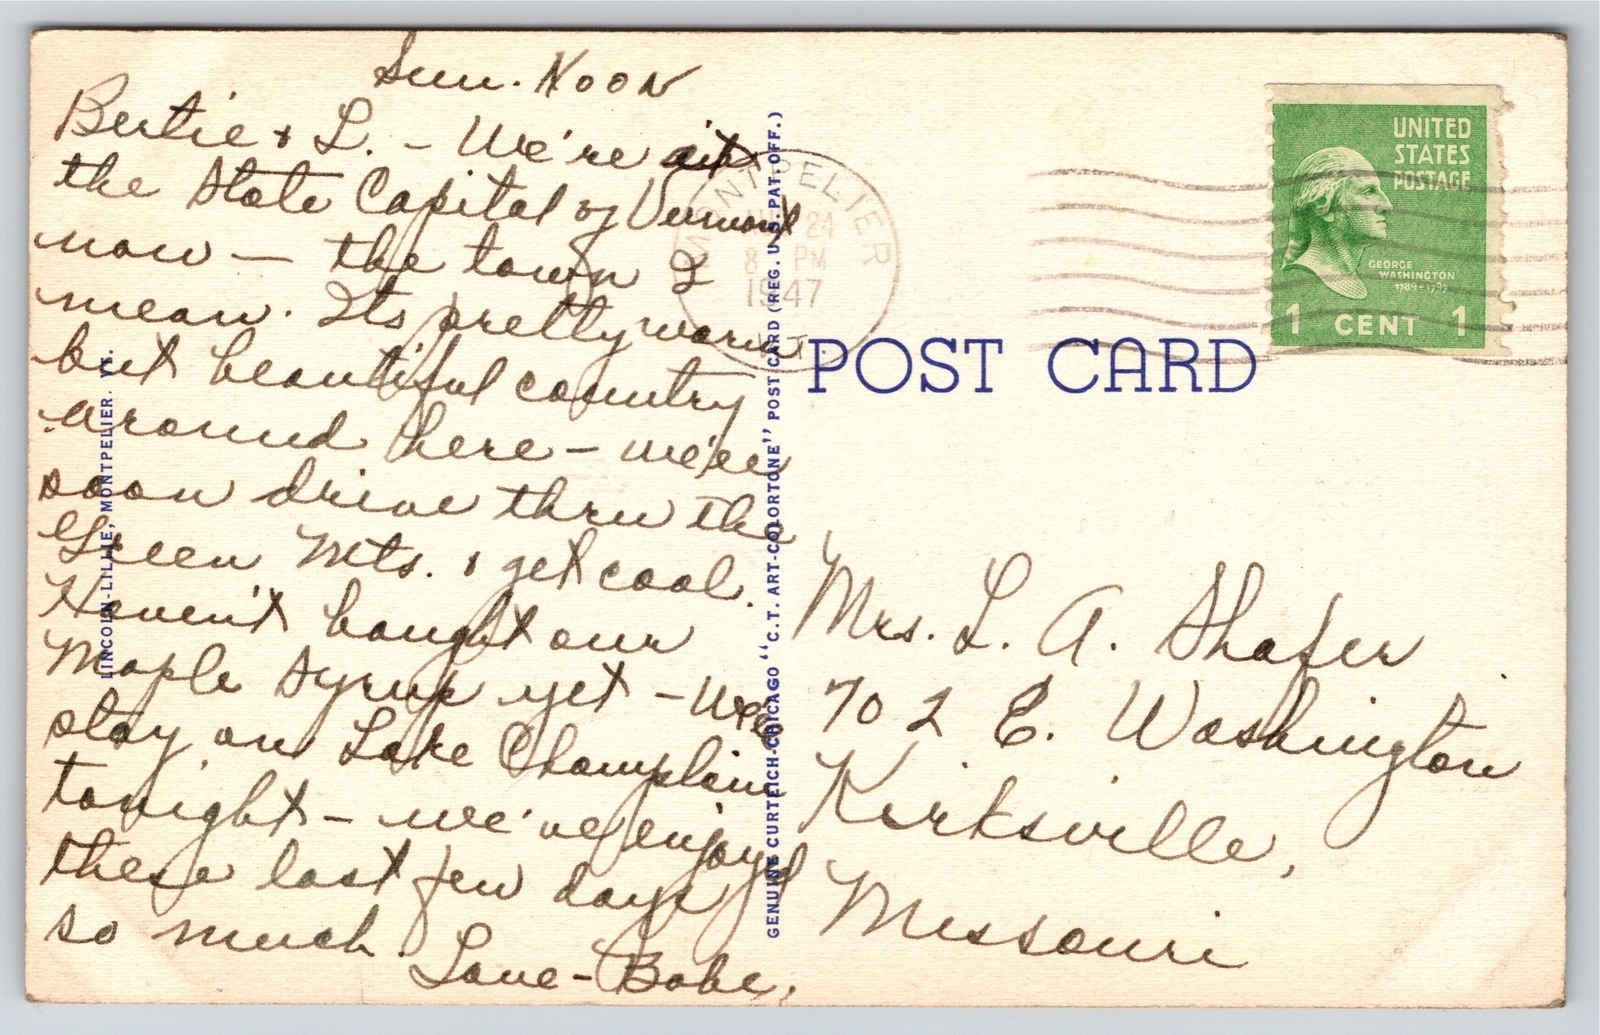 Sun. Noon
Bertie & L. - We're at
the State Capital of Vermont
now - the town I
mean. Its pretty warm
but beautiful country
around here - we'll
soon drive thru the
Green Mts. & get cool.
Haven't bought our
Maple Syrup yet - We'll
stay on Lake Champlain
tonight - we've enjoyed
these last few days
so much.
Love - Babe.
LINCOLN-LILLIE, MONTPELIER. VT.
GENUINE CURTEICH-CHICAGO "C.T. ART-COLORTONE" POST CARD (REG. U.S. PAT. OFF.)
MONTPELIER
24
8 PM
1947
VT.
POST CARD
UNITED
STATES
POSTAGE
GEORGE
WASHINGTON
1789-1797
1 CENT 1
Mrs. L. A. Shafer
702 E. Washington
Kirksville,
Missouri